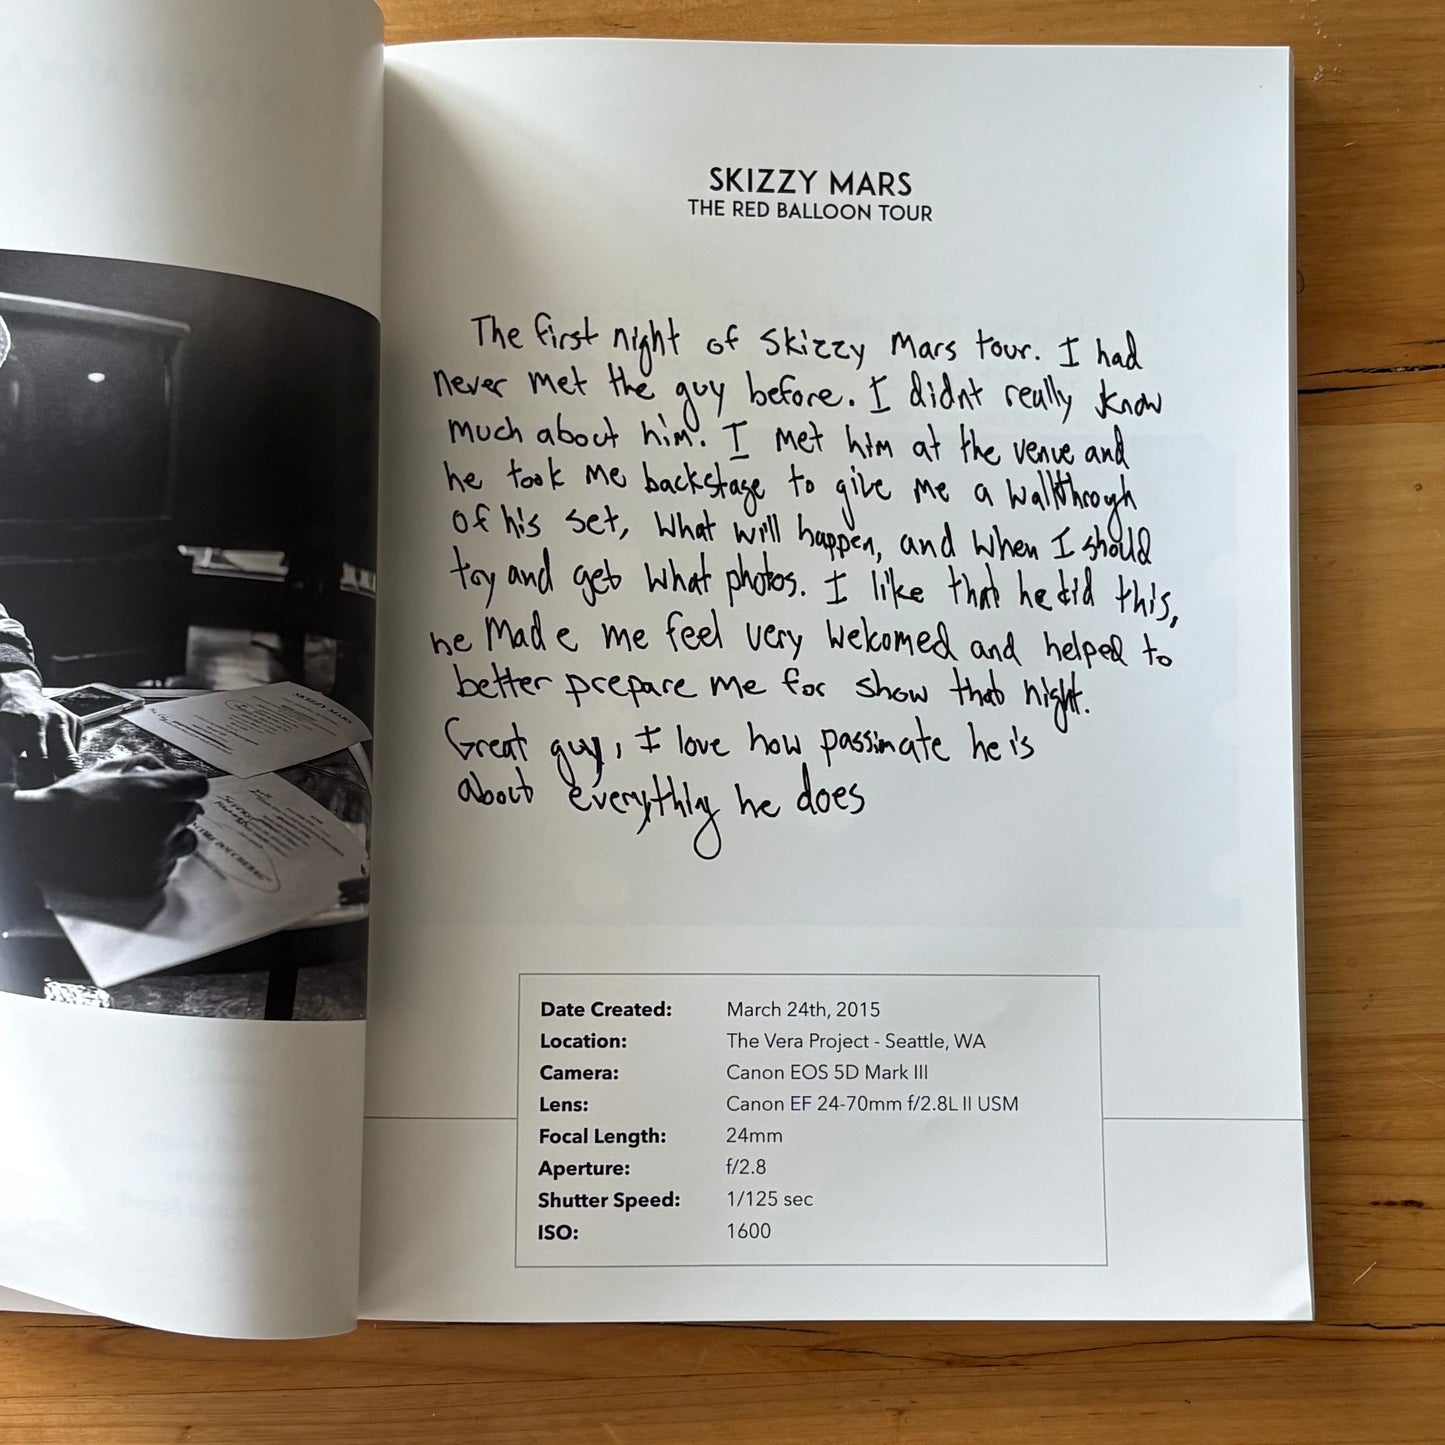 SKIZZY MARS
THE RED BALLOON TOUR
The first night of Skizzy Mars tour. I had
never met the guy before. I didnt really know
much about him. I met him at the venue and
he took me backstage to give me a walkthrough
of his set, what will happen, and when I should
try and get what photos. I like that he did this,
he made me feel very welcomed and helped to
better prepare me for show that night.
Great guy, I love how passinate he is
about everything he does
Date Created: March 24th, 2015
Location: The Vera Project - Seattle, WA
Camera: Canon EOS 5D Mark III
Lens: Canon EF 24-70mm f/2.8L II USM
Focal Length: 24mm
Aperture: f/2.8
Shutter Speed: 1/125 sec
ISO: 1600
SKIZZY MARS